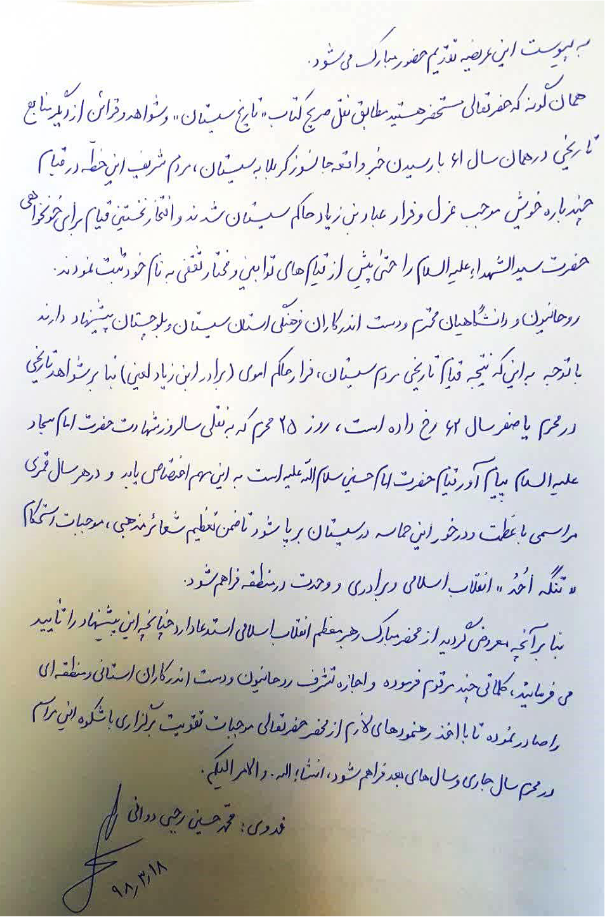 به پیوست این عریضه تقدیم حضور مبارک می‌شود.
همان گونه که حضرتعالی مستحضر هستید مطابق نقل صریح کتاب «تاریخ سیستان» و شواهد و قرائن از دیگر منابع
تاریخی در همان سال ۶۱ با رسیدن خبر واقعه جانسوز کربلا به سیستان، مردم شریف این خطّه در قیام
چندباره خویش موجب عزل و فرار عباد بن زیاد حاکم سیستان شدند و افتخار نخستین قیام برای خونخواهی
حضرت سیدالشهداء علیه السلام را حتی پیش از قیام های توابین و مختار ثقفی به نام خود ثبت نمودند.
روحانیون و دانشگاهیان محترم و دست اندرکاران فرهنگی استان سیستان و بلوچستان پیشنهاد دارند
با توجه به این که نتیجه قیام تاریخی مردم سیستان، فرار حاکم اموی (برادر ابن زیاد لعین) بنا بر شواهد تاریخی
در محرم یا صفر سال ۶۲ رخ داده است، روز ۲۵ محرم که به نقلی سالروز شهادت حضرت امام سجاد
علیه السلام پیام آور قیام حضرت امام حسین سلام الله علیه است به این مهم اختصاص یابد و در هر سال قمری
مراسمی با عظمت و درخور این حماسه در سیستان برپا شود تا ضمن تعظیم شعائر مذهبی، موجبات استحکام
«تنگه اُحُد» انقلاب اسلامی و برادری و وحدت در منطقه فراهم شود.
بنا بر آنچه معروض گردید از محضر مبارک رهبر معظم انقلاب اسلامی استدعا دارد چنانچه این پیشنهاد را تأیید
می فرمایند، کلماتی چند مرقوم فرموده و اجازه تشرف روحانیون و دست اندرکاران استانی و منطقه ای
را صادر نموده تا با اخذ رهنمودهای لازم از محضر حضرتعالی موجبات تقویت برگزاری باشکوه این مراسم
در محرم سال جاری و سال های بعد فراهم شود، انشاءالله. والامر الیکم.
فدوی: محمدحسین رجبی دوانی
۹۸٫۳٫۱۸